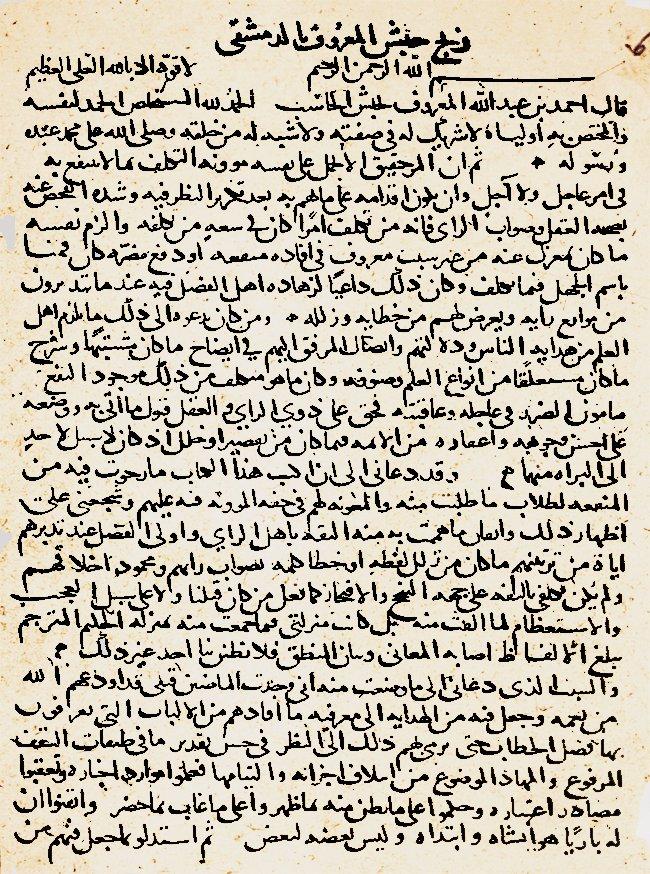 زيج حبش المعروف بالدمشقي
6
بسم الله الرحمن الرحيم لا قوة الا بالله العلي العظيم
قال احمد بن عبد الله المعروف بحبش الحاسب الحمد لله المستخلص الحمد لنفسه
والمختص به اولياه لا شريك له في صفته ولا شبه له من خلقه وصلى الله على محمد عبده
ورسوله ثم ان المرء حقيق الا يحمل على نفسه موونة التكلف بما لا ينتفع به
في امر عاجل ولا آجل وان يكون اقدامه على ما هم به بعد تكرير النظر فيه وشدة الفحص عنه
العقل وصواب الراي فانه من تكلف امرا كان في سعة من كلفه والزم نفسه
ما كان بمعزل عنه من غير سبب معروف في افادة منفعة او دفع مضرة كان قمنا
باسم الجهل فيما تكلف وكان ذلك داعيا لزهادة اهل الفضل فيه عندما يتدبرون
من مواقع رايه ويعرض لهم من خطايه وزلله ومن كان يدعوه الى ذلك ما يلزم اهل
العلم من هداية الناس ودلالتهم وايصال المرفق اليهم في ايضاح ما كان مشتبها وشرح
ما كان مستغلقا من انواع العلم وصنوفه وكان ما هو متكلف من ذلك موجود النفع
مامون الضرر في عاجله وعاقبته فحق على ذوي الراي والعقل قبول ما اتى به ووضعه
على احسن وجوهه من الايمه فيما كان من تقصير او خلل اذ كان لا سبيل لاحد
الى البراه منهما وقد دعاني الى ان هذا الكتاب ما رجوت فيه من
المنفعه لطلاب ما طلبت منه والمعونه لهم في خفه المونه فيه عليهم وشجعني على
اظهار ذلك واتقان ما هممت به منه الثقه باهل الراي واولي الفضل عند تدبرهم
اياه من ما كان من زلل لفظه او خطا كلمه بصواب رايهم ومحمود اخلاقهم
ولم يكن على جهة البذخ والافتخار كما فعل من كان قبلنا ولا على سبيل العجب
والاستعظام لما الفت منه بل كانت منزلتي فيما جمعت منه بمنزلة المعلم المترجم
يبلغ الالفاظ اصابه المعاني وبيان المنطق فلا يظن بنا احد غير ذلك
والسبب الذي دعاني الى ما وضعت منه اني وجدت الماضين قبلي قد اودعهم الله
من نعمه وجعل فيه من الهدايه الى معرفته ما افادهم من الالباب التي بها عرفوا
فصل الخطاب حتى ترقى بهم ذلك الى النظر في حسن تقدير ما في طبقات السقف
المرفوع والمهاد الموضوع من ايتلاف اجزائه والتيامها فعملوا موارد اختياره وتعقبوا
مصادر اعتباره وحكموا على ما بطن منه بما ظهر وعلى ما غاب بما حضر وايقنوا ان
له باريا هو انشاه وابتداه وليس بعضه لبعض ثم استدلوا بما جعل فيهم من